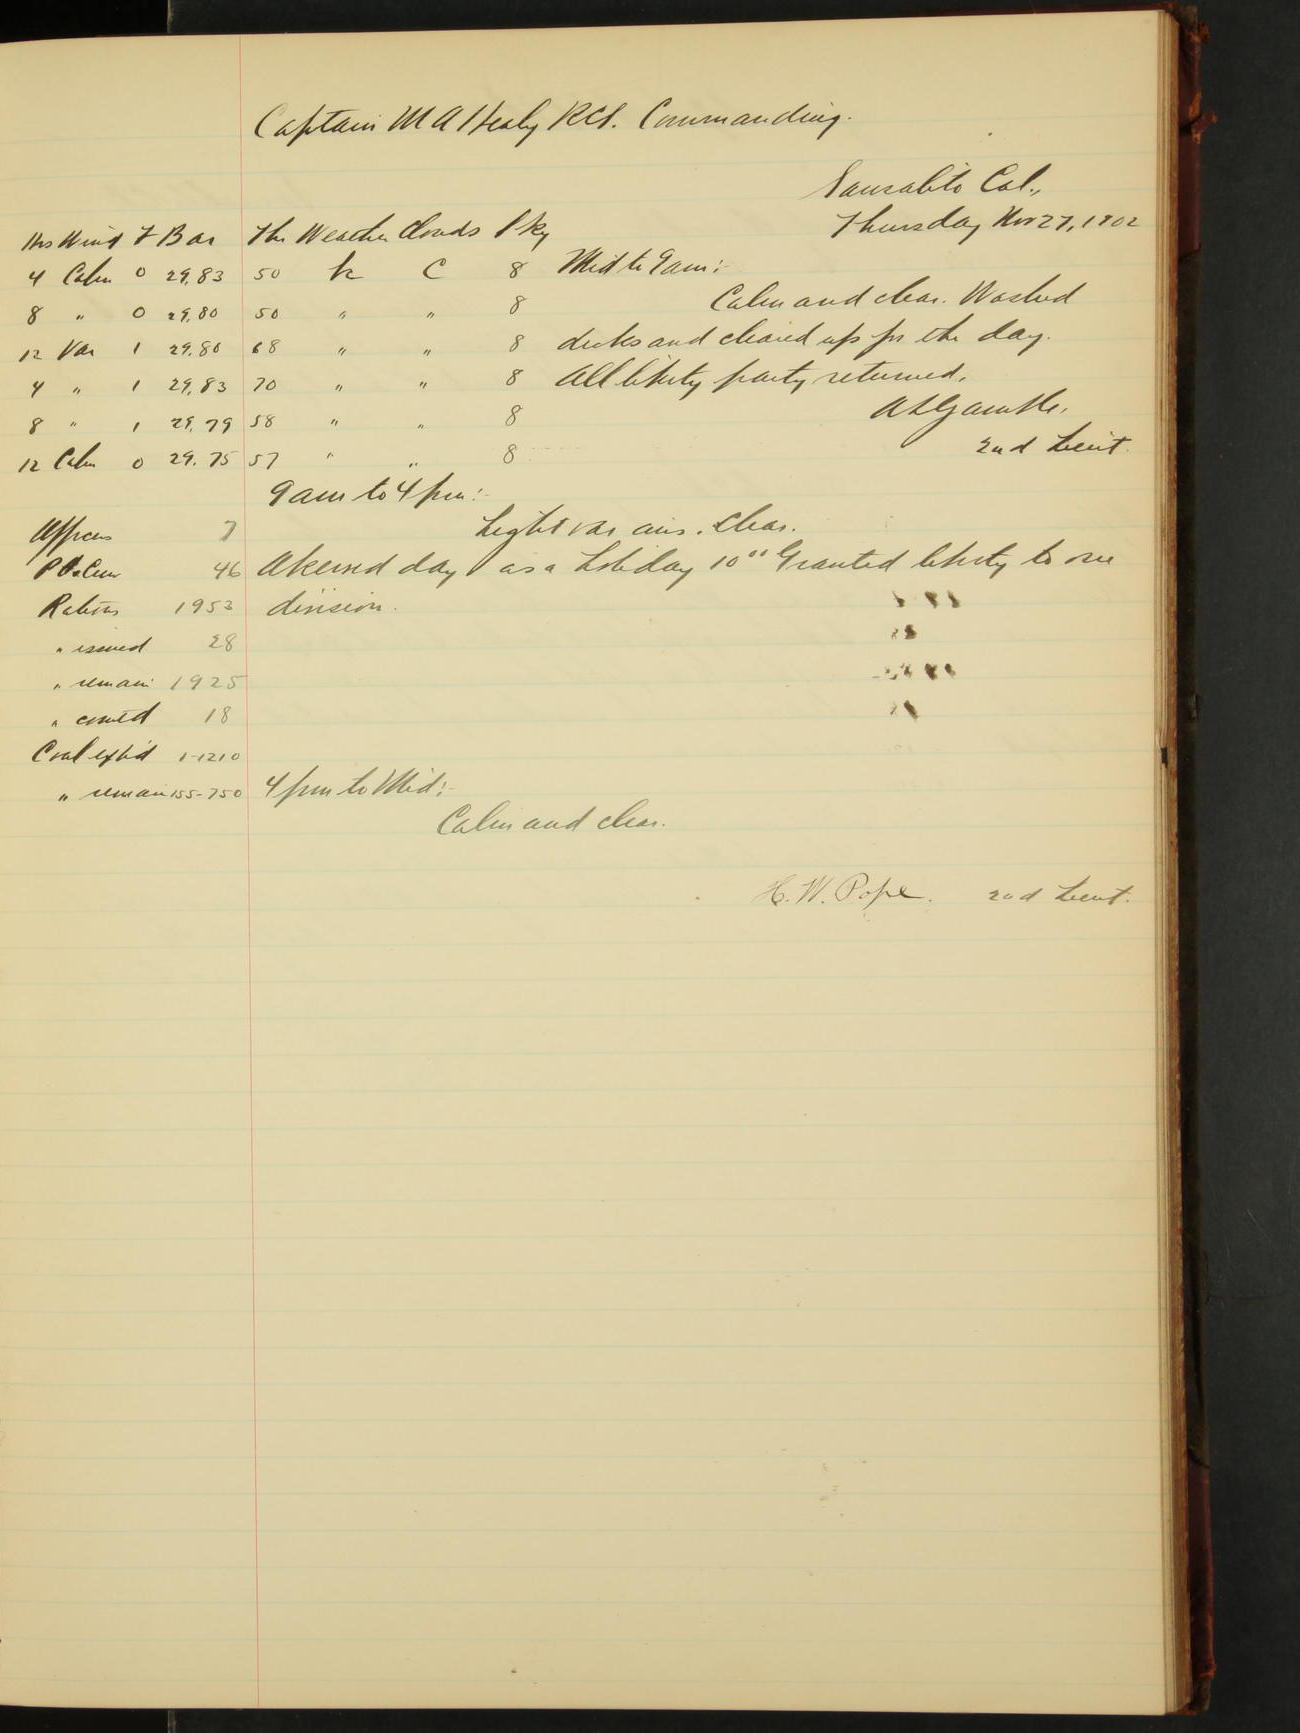 Captain M A Healy RCS. Commanding.
Sausalito Cal.,
Thursday Nov 27, 1902
Hrs Wind F Bar Ther Weather Clouds Sky
4 Calm 0 29.83 50 b C 8 Mid to 9 am:-
8 " 0 29.80 50 " " 8 Calm and clear. Washed
12 Var 1 29.80 68 " " 8 decks and cleaned up for the day.
4 " 1 29.83 70 " " 8 All liberty party returned.
8 " 1 29.79 58 " " 8 Gamble.
12 Calm 0 29.75 57 " " 8 2nd Lieut.
9 am to 4 pm:-
Officers 7 Light var airs. Clear.
Crew 46 Observed day as a holiday 10°° Granted liberty to one
Rations 1953 division.
" issued 28
" remain 1925
" comtd 18
Coal exp'd 1-1210
" remain 155-750 4 pm to Mid:-
Calm and clear.
H. W. Pope. 2nd Lieut.